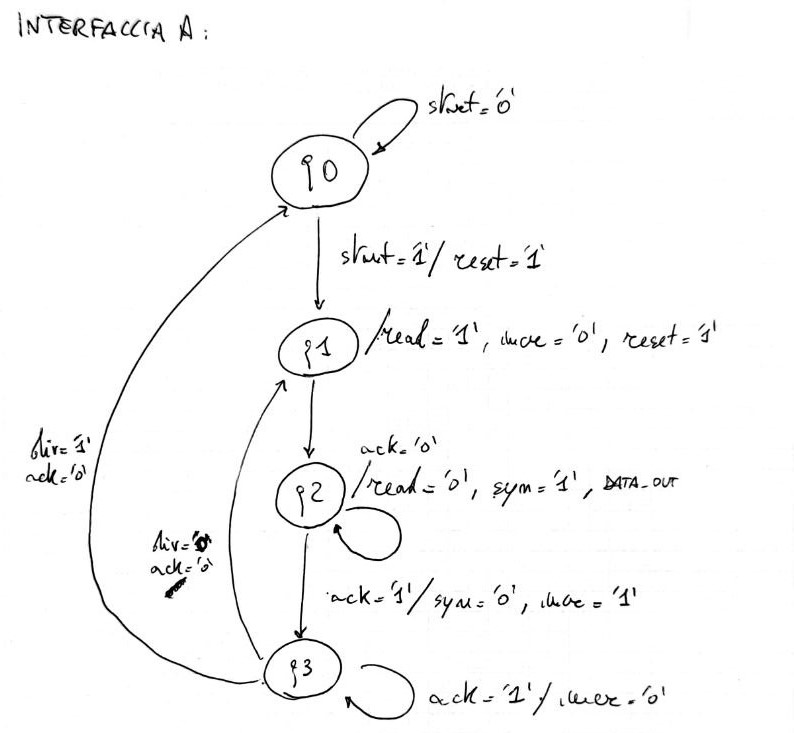 INTERFACCIA A:
start='0'
q0
start='1'/ reset='1'
q1
/read='1', incre='0', reset='1'
div='1'
ack='0'
ack='0'
q2
/read='0', sym='1', DATA_OUT
div='0'
ack='0'
ack='1'/ sym='0', incre='1'
q3
ack='1'/ incre='0'